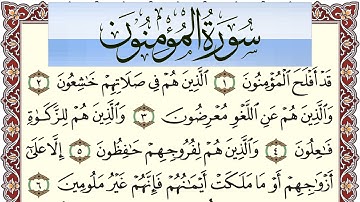 سُورَةُ المُؤْمِنُونَ
قَدْ أَفْلَحَ ٱلْمُؤْمِنُونَ ١ ٱلَّذِينَ هُمْ فِى صَلَاتِهِمْ خَٰشِعُونَ ٢
وَٱلَّذِينَ هُمْ عَنِ ٱللَّغْوِ مُعْرِضُونَ ٣ وَٱلَّذِينَ هُمْ لِلزَّكَوٰةِ
فَٰعِلُونَ ٤ وَٱلَّذِينَ هُمْ لِفُرُوجِهِمْ حَٰفِظُونَ ٥ إِلَّا عَلَىٰٓ
أَزْوَٰجِهِمْ أَوْ مَا مَلَكَتْ أَيْمَٰنُهُمْ فَإِنَّهُمْ غَيْرُ مَلُومِينَ ٦